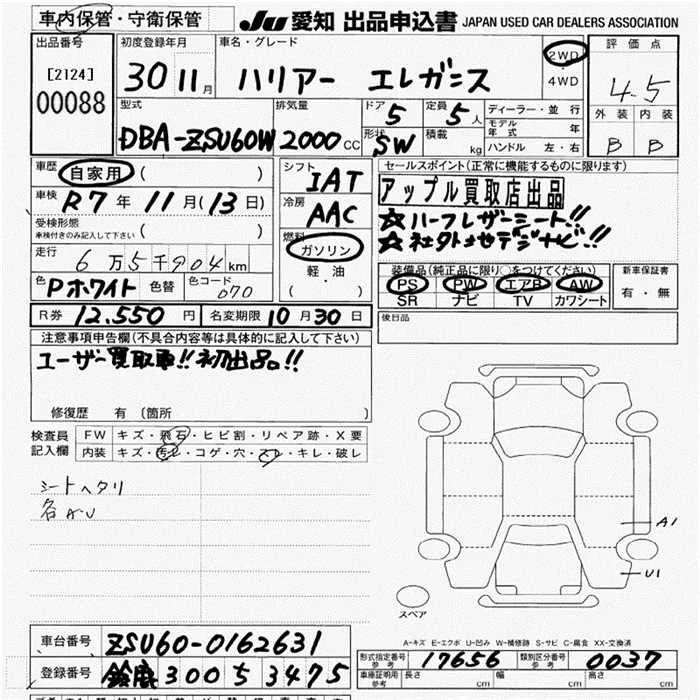 車内保管・守衛保管
JU 愛知 出品申込書 JAPAN USED CAR DEALERS ASSOCIATION
出品番号 初度登録年月 車名・グレード 2WD 評価点
[2124] 30 11月 ハリアー エレガンス ・ 4.5
00088 4WD
型式 排気量 ドア 定員 ディーラー・並行 外装 内装
DBA-ZSU60W 2000cc 5 5人 モデル年式 年 B B
形状 SW 積載 kg ハンドル 左・右
車歴 自家用 ( ) シフト IAT セールスポイント(正常に機能するものに限ります)
車検 R7年 11月(13日) 冷房 AAC アップル買取店出品
受検形態 ( ) ☆ハーフレザーシート!!
車検付きのみ記入して下さい 燃料 ☆社外地デジナビ!!
走行 6万5千904km ガソリン
軽油 装備品(純正品に限り○をつけてください) 新車保証書
色 Pホワイト 色替 色コード 070 (・) PS PW エアB AW 有・無
SR ナビ TV カワシート
R券 12,550円 名変期限 10月30日 後日品
注意事項申告欄(不具合内容等は具体的に記入して下さい)
ユーザー買取車!!初出品。!!
修復歴 有 〔箇所 〕
検査員 FW キズ・飛石・ヒビ割・リペア跡・X要
記入欄 内装 キズ・汚レ・コゲ・穴・スレ・キレ・破レ
シートヘタリ
各A.U
A1
U1
スペア
A-キズ E-エクボ U-凹み W-補修跡 S-サビ C-腐食 XX-交換済
車台番号 ZSU60-0162631
型式指定番号 参考 17656 類別区分番号 参考 0037
登録番号 鈴鹿 300 ち 3475
車庫証明用 参考 長さ cm 幅 cm 高さ cm